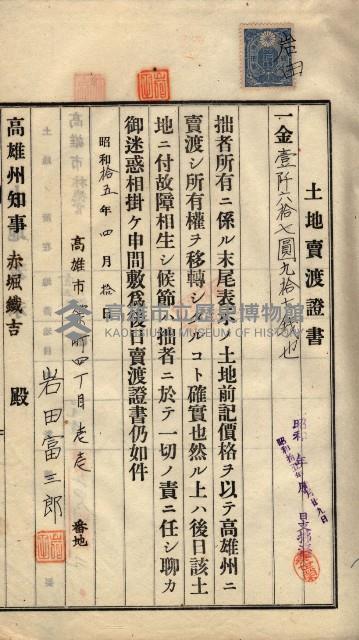 岩田
土地賣渡證書
一金壹阡六拾七圓九拾七錢也
拙者所有ニ係ル末尾表示ノ土地前記價格ヲ以テ高雄州ニ
賣渡シ所有權ヲ移轉シタルコト確實也然ル上ハ後日該土
地ニ付故障相生シ候節ハ拙者ニ於テ一切ノ責ニ任シ聊カ
御迷惑相掛ケ申間敷為後日賣渡證書仍如件
昭和拾五年四月拾
高雄市 四丁目 番地
岩田富三郎
高雄州知事 赤堀鐵吉 殿
高雄市立歷史博物館
KAOHSIUNG MUSEUM OF HISTORY